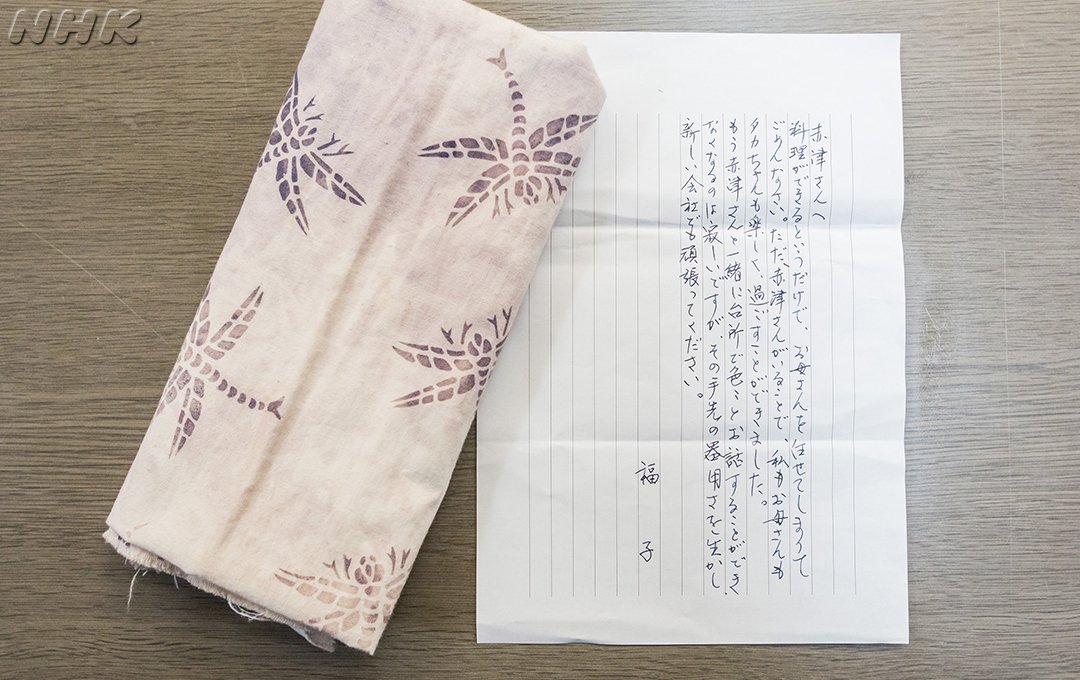 NHK
赤津さんへ
料理ができるというだけで、お母さんを任せてしまって
ごめんなさい。ただ赤津さんがいることで、私もお母さんも
タカちゃんも楽しく、過ごすことができました。
もう赤津さんと一緒に台所で色々とお話することができ
なくなるのは寂しいですが、その手先の器用さを生かし
新しい会社でも頑張ってください。
福子